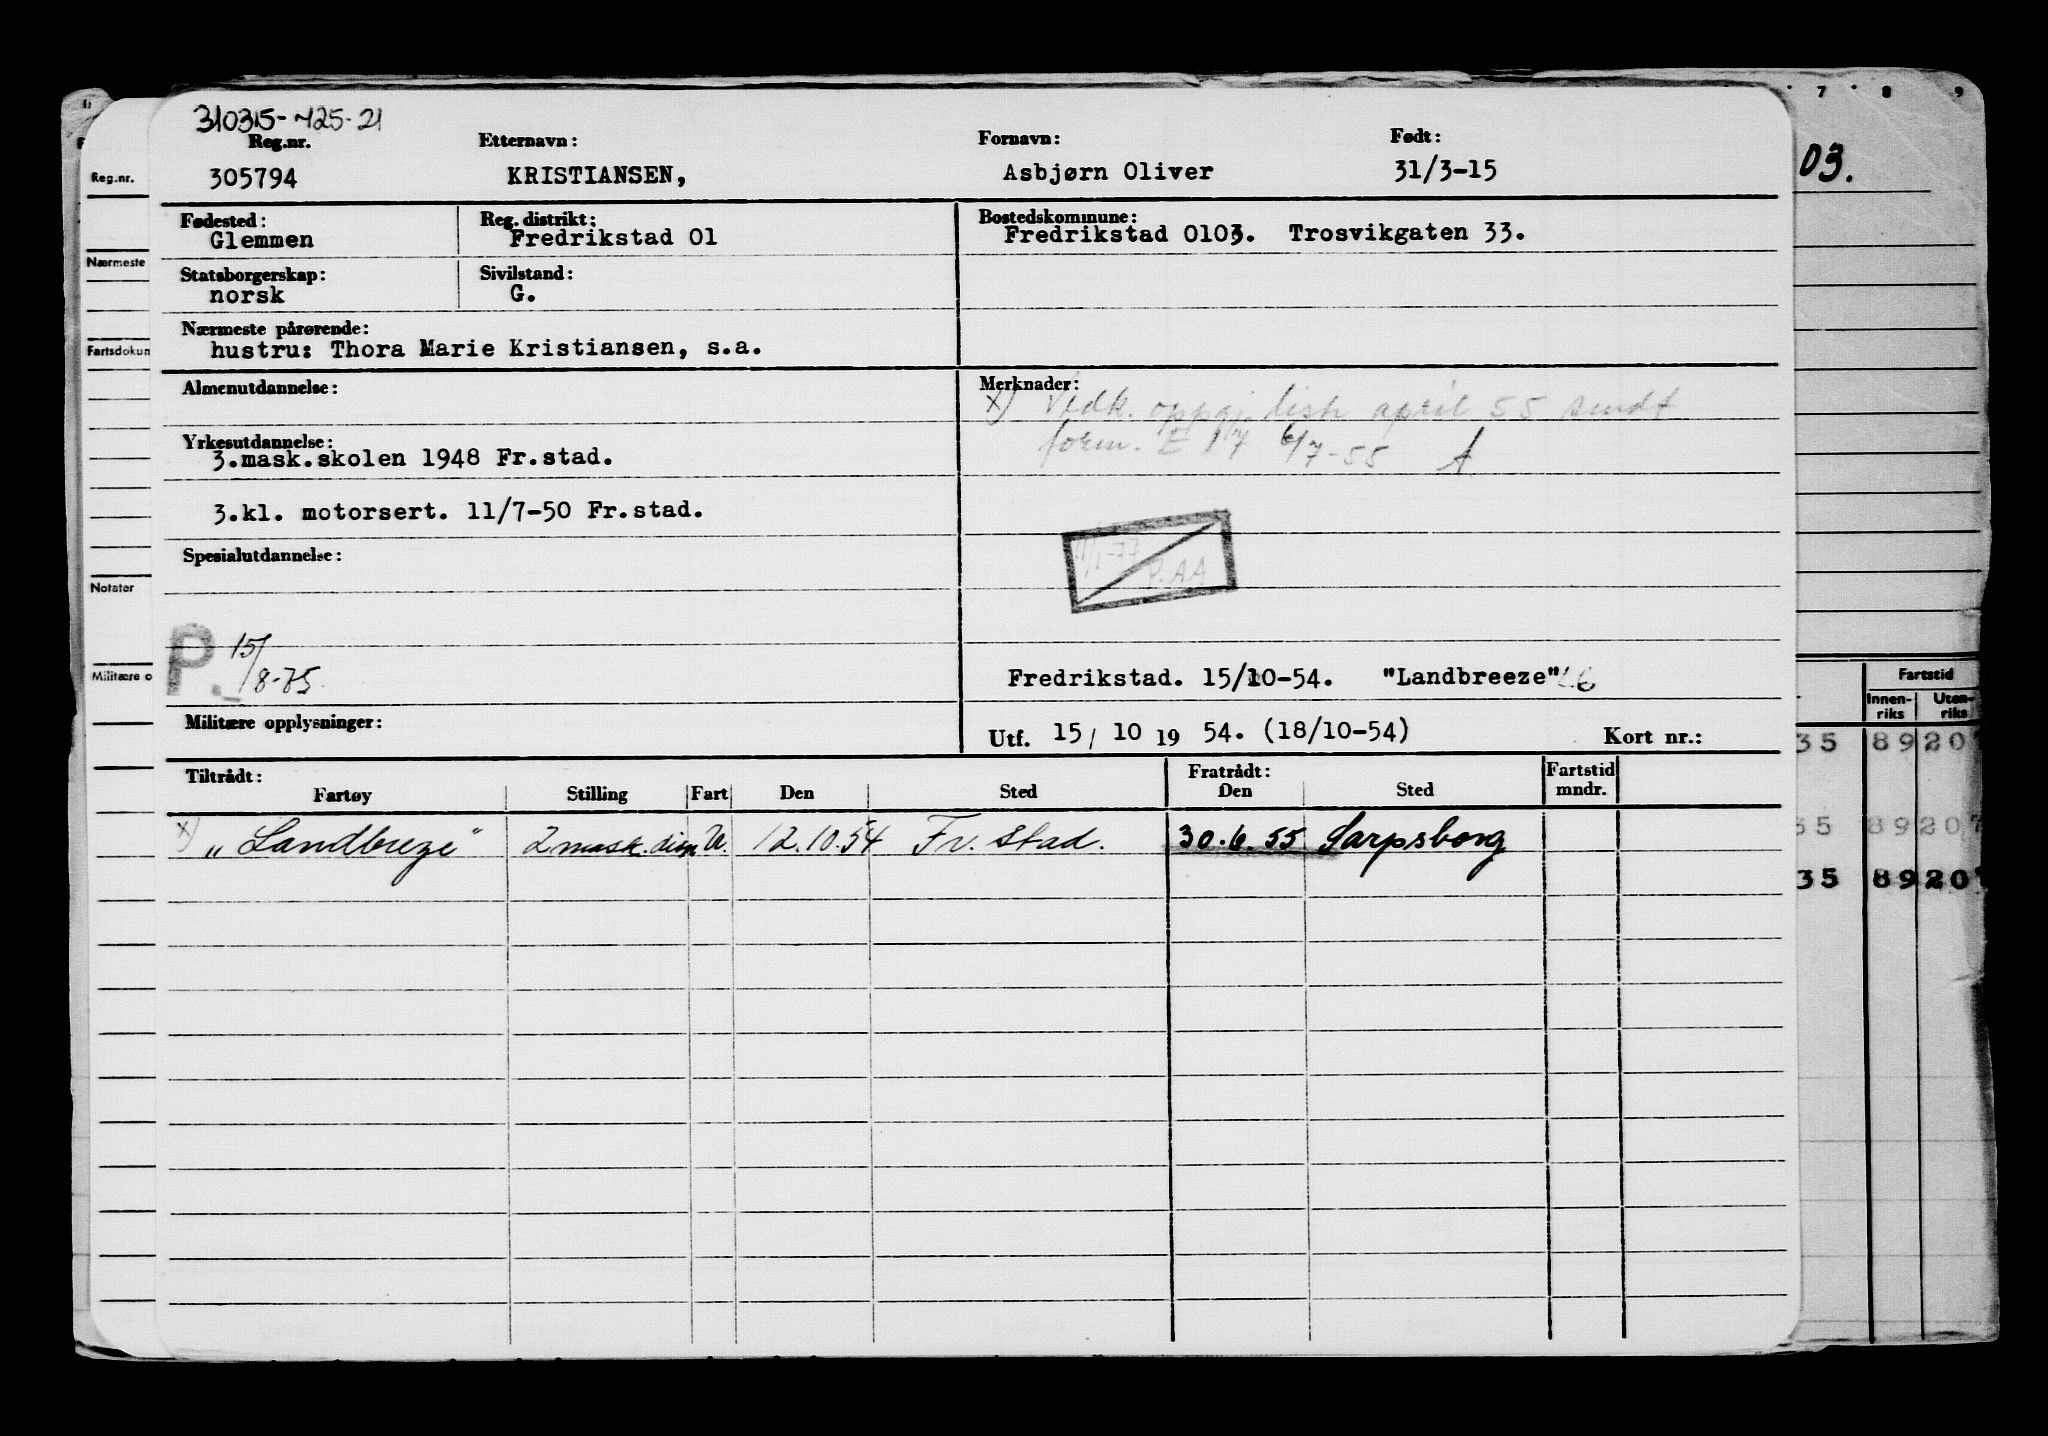 310315-
Reg.nr. Etternavn: Fornavn: Født:
305794 KRISTIANSEN, Asbjørn Oliver 31/3-15
Fødested: Reg. distrikt: Bostedskommune:
Glemmen Fredrikstad 01 Fredrikstad 0103. Trosvikgaten 33.
Statsborgerskap: Sivilstand:
norsk G.
Nærmeste pårørende:
hustru: Thora Marie Kristiansen, s.a.
Almenutdannelse: Merknader:
x) Vedk. oppgj. april 55 sendt
form. E 6/7-55
Yrkesutdannelse:
3.mask.skolen 1948 Fr.stad.
3.kl. motorsert. 11/7-50 Fr.stad.
Spesialutdannelse:
P. 15/8-75
Fredrikstad. 15/10-54. "Landbreeze"
Militære opplysninger: Utf. 15/ 10 19 54. (18/10-54) Kort nr.:
Tiltrådt: Fratrådt: Fartstid
Fartøy Stilling Fart Den Sted Den Sted mndr.
x) "Landbreze" 2 mask. disp U. 12.10.54 Fr. stad. 30.6.55 Sarpsborg
Reg.nr.
Nærmeste
Fartsdokum
Notater
Militære o
7 8 9
03.
Fartstid
Innen-riks Uten-riks
35 89 207
35 89 207
35 89 207